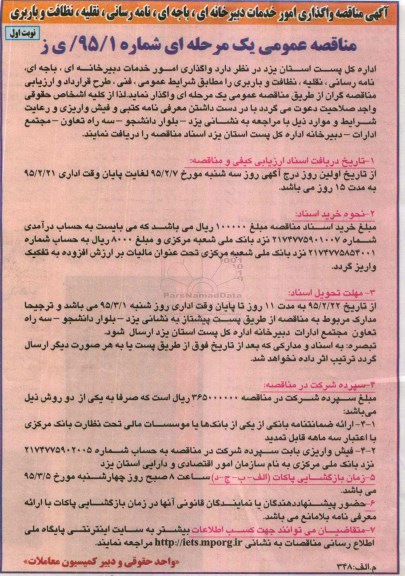 آگهی مناقصه واگذاری امور خدمات دبیرخانه ای، باجه ای، نامه رسانی، نقلیه، نظافت و باربری
نوبت اول
مناقصه عمومی یک مرحله ای شماره ۹۵/۱/ ی ز
اداره کل پست استان یزد در نظر دارد واگذاری امور خدمات دبیرخانه ای، باجه ای،
نامه رسانی، نقلیه، نظافت و باربری را مطابق شرایط عمومی، فنی، طرح قرارداد و ارزیابی
مناقصه گران از طریق مناقصه عمومی یک مرحله ای واگذار نماید.لذا از کلیه اشخاص حقوقی
واجد صلاحیت دعوت می گردد با در دست داشتن معرفی نامه کتبی و فیش واریزی و رعایت
شرایط و موارد ذیل با مراجعه به نشانی یزد - بلوار دانشجو - سه راه تعاون - مجتمع
ادارات - دبیرخانه اداره کل پست استان یزد اسناد مناقصه را دریافت نمایند.
۱-تاریخ دریافت اسناد ارزیابی کیفی و مناقصه:
از تاریخ اولین روز درج آگهی روز سه شنبه مورخ ۹۵/۲/۷ لغایت پایان وقت اداری ۹۵/۲/۲۱
به مدت ۱۵ روز می باشد.
۲-نحوه خرید اسناد:
مبلغ خرید اسناد مناقصه مبلغ ۱۰۰۰۰۰ ریال می باشد که می بایست به حساب درآمدی
شماره ۲۱۷۴۷۷۵۹۰۱۰۰۷ نزد بانک ملی شعبه مرکزی و مبلغ ۸۰۰۰ ریال به حساب شماره
۲۱۷۴۷۷۵۸۵۳۰۰۱ نزد بانک ملی شعبه مرکزی تحت عنوان مالیات بر ارزش افزوده به تفکیک
واریز گردد.
۳- مهلت تحویل اسناد:
از تاریخ ۹۵/۲/۲۲ به مدت ۱۱ روز تا پایان وقت اداری روز شنبه ۹۵/۳/۱ می باشد و ترجیحا
مدارک مربوط به مناقصه از طریق پست پیشتاز به نشانی یزد - بلوار دانشجو - سه راه
تعاون مجتمع ادارات دبیرخانه اداره کل پست استان یزد ارسال شود.
تبصره: به اسناد و مدارکی که بعد از تاریخ فوق از طریق پست یا به هر صورت دیگر ارسال
گردد ترتیب اثر داده نخواهد شد.
۴-سپرده شرکت در مناقصه:
مبلغ سپرده شرکت در مناقصه ۳۶۵۰۰۰۰۰۰ ریال است که صرفا به یکی از دو روش ذیل
می‌باشد:
۳-۱- ارائه ضمانتنامه بانکی از یکی از بانکها یا موسسات مالی تحت نظارت بانک مرکزی
با اعتبار سه ماهه قابل تمدید
۴-۲- فیش واریزی بابت سپرده شرکت در مناقصه به حساب شماره ۲۱۷۴۷۷۵۹۰۲۰۰۵
نزد بانک ملی مرکزی به نام سازمان امور اقتصادی و دارایی استان یزد
۵-زمان بازگشایی پاکات (الف-ب-ج-د) ساعت ۸ صبح روز چهارشنبه مورخ ۹۵/۳/۵
می باشد.
۶-حضور پیشنهاددهندگان یا نمایندگان قانونی آنها در زمان بازگشایی پاکات با ارائه
معرفی نامه بلامانع می باشد.
۷-متقاضیان می توانند جهت کسب اطلاعات بیشتر به سایت اینترنتی پایگاه ملی
اطلاع رسانی مناقصات به نشانی http://iets.mporg.ir مراجعه نمایند.
م.الف:۳۴۸
«واحد حقوقی و دبیر کمیسیون معاملات»